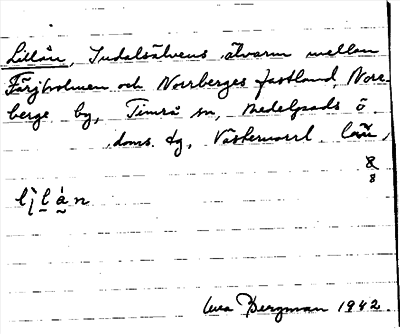 Lillån, Indalsälvens älvarm mellan
Färjholmen och Norrberges fastland, Norr-
berge by, Timrå sn, Medelpads ö.
doms. tg, Västernorrl. län,
8
8
Bergman 1942.